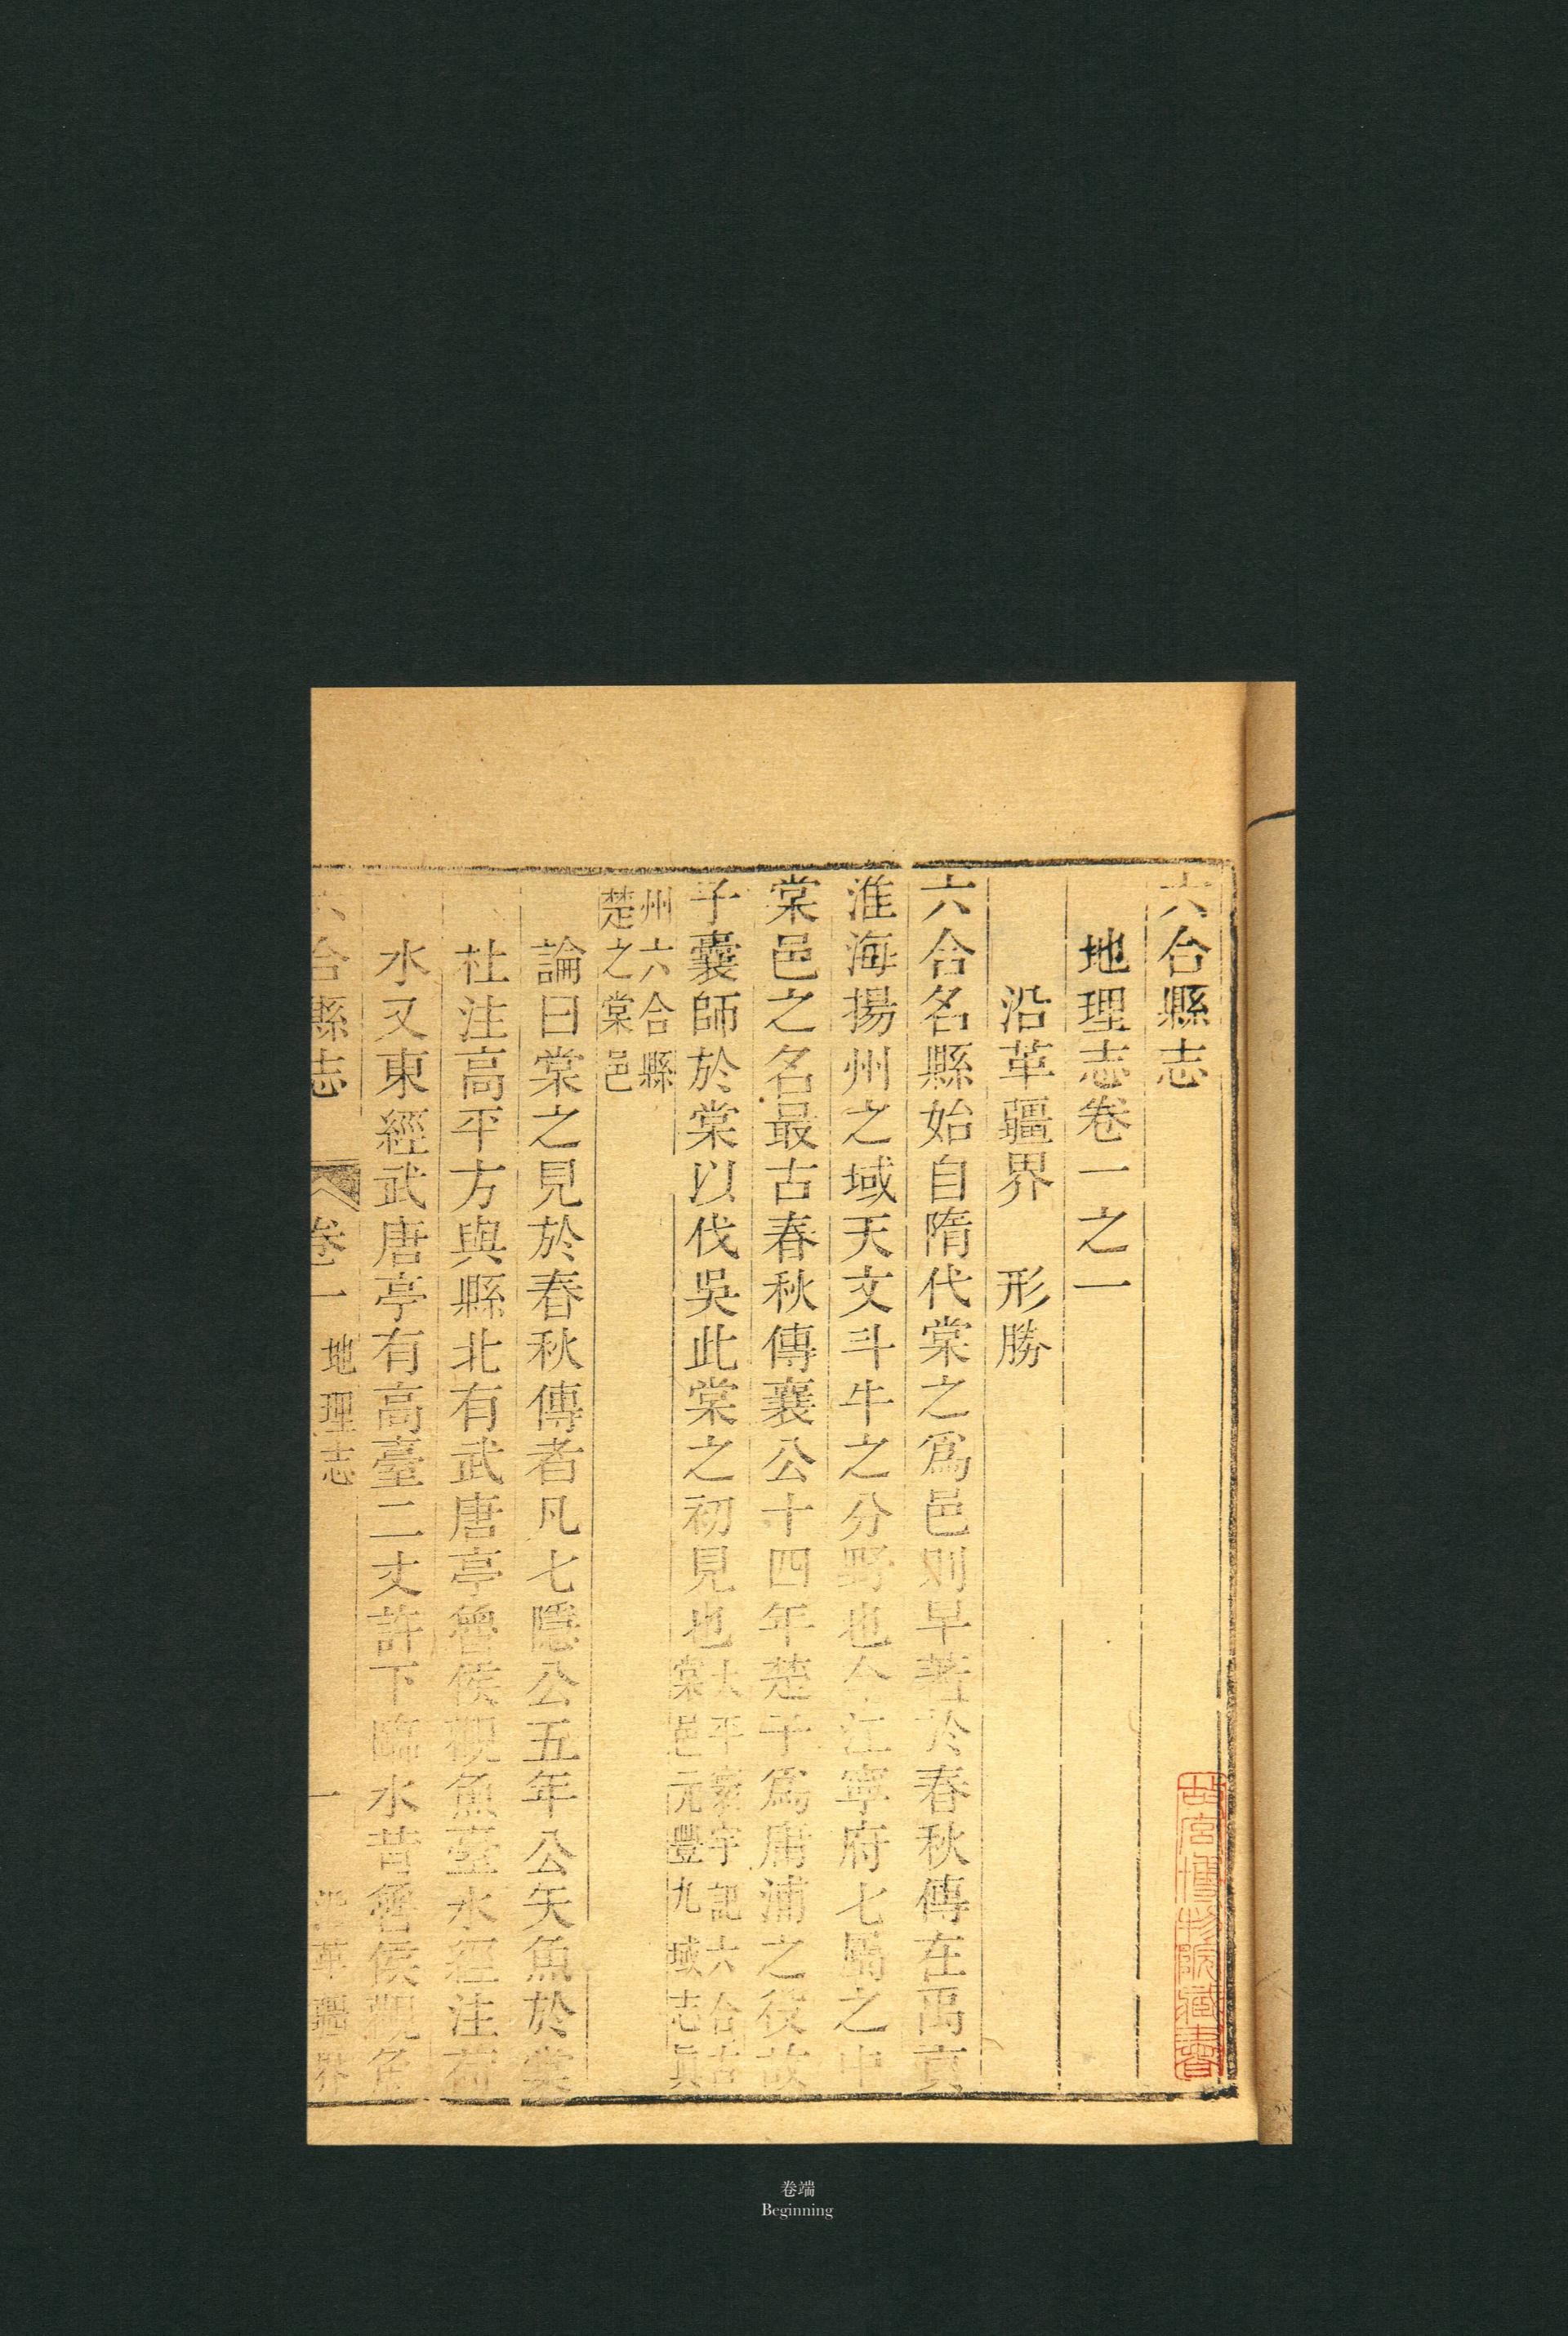 六合縣志
地理志卷一之一
沿革疆界　形勝
六合名縣始自隋代棠之爲邑則早著於春秋傳在禹貢
淮海揚州之域天文斗牛之分野也今江寧府七屬之中
棠邑之名最古春秋傳襄公十四年楚子爲庸浦之役故
子囊師於棠以伐吳此棠之初見也太平寰宇記六合古
棠邑元豐九域志眞
州六合縣
楚之棠邑
論曰棠之見於春秋傳者凡七隱公五年公矢魚於棠
杜注高平方與縣北有武唐亭魯侯觀魚臺水經注荷
水又東經武唐亭有高臺二丈許下臨水昔魯侯觀魚
六合縣志　卷一　地理志　一　沿革疆界
故宮博物院藏書
卷端
Beginning